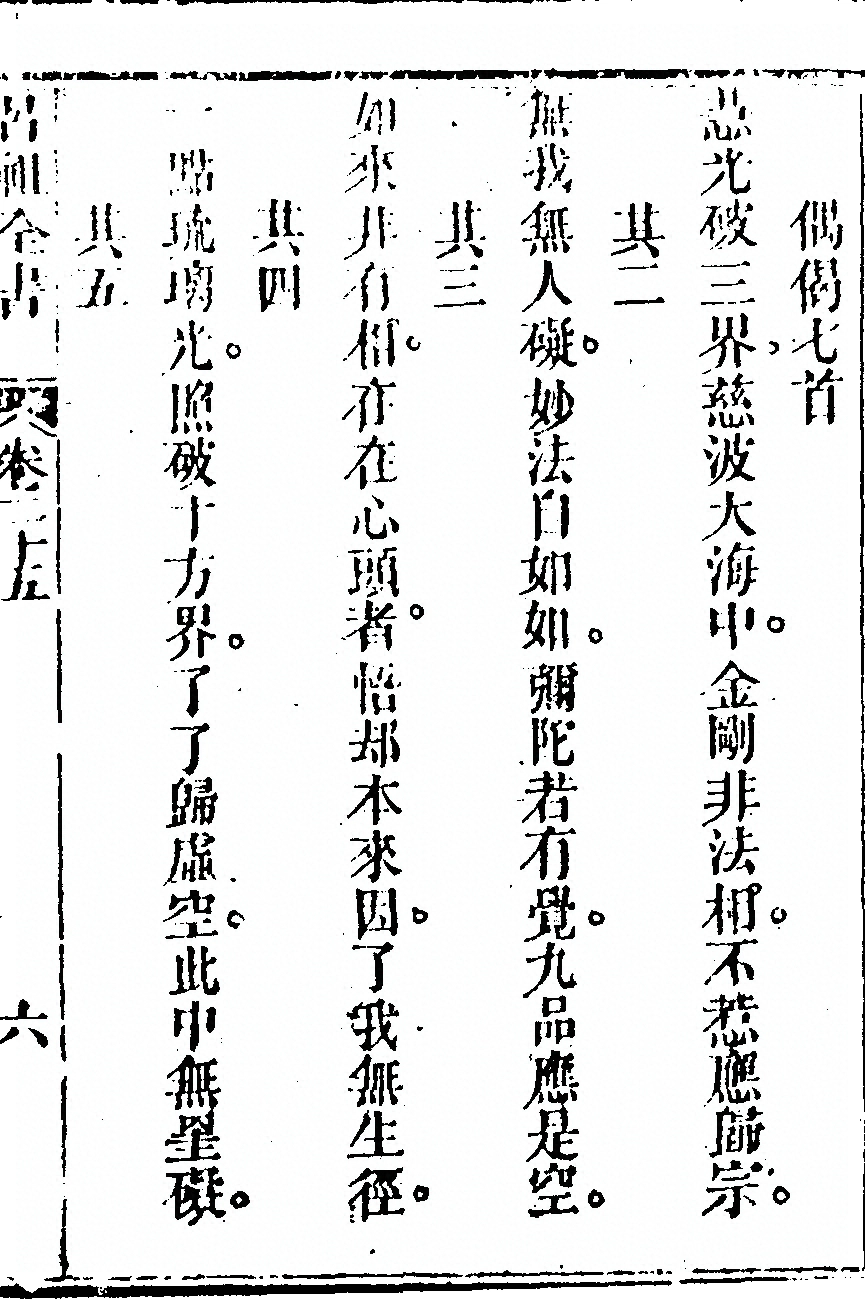 偶偈七首
慧光破三界。慈波大海中。金剛非法相。不惹應歸宗。
其二
無我無人礙。妙法自如如。彌陀若有覺。九品應是空。
其三
如來非有相。存在心頭者。悟却本來因。了我無生徑。
其四
一點琉璃光。照破十方界。了了歸虛空。此中無罣礙。
其五
呂祖全書 卷二十五 六